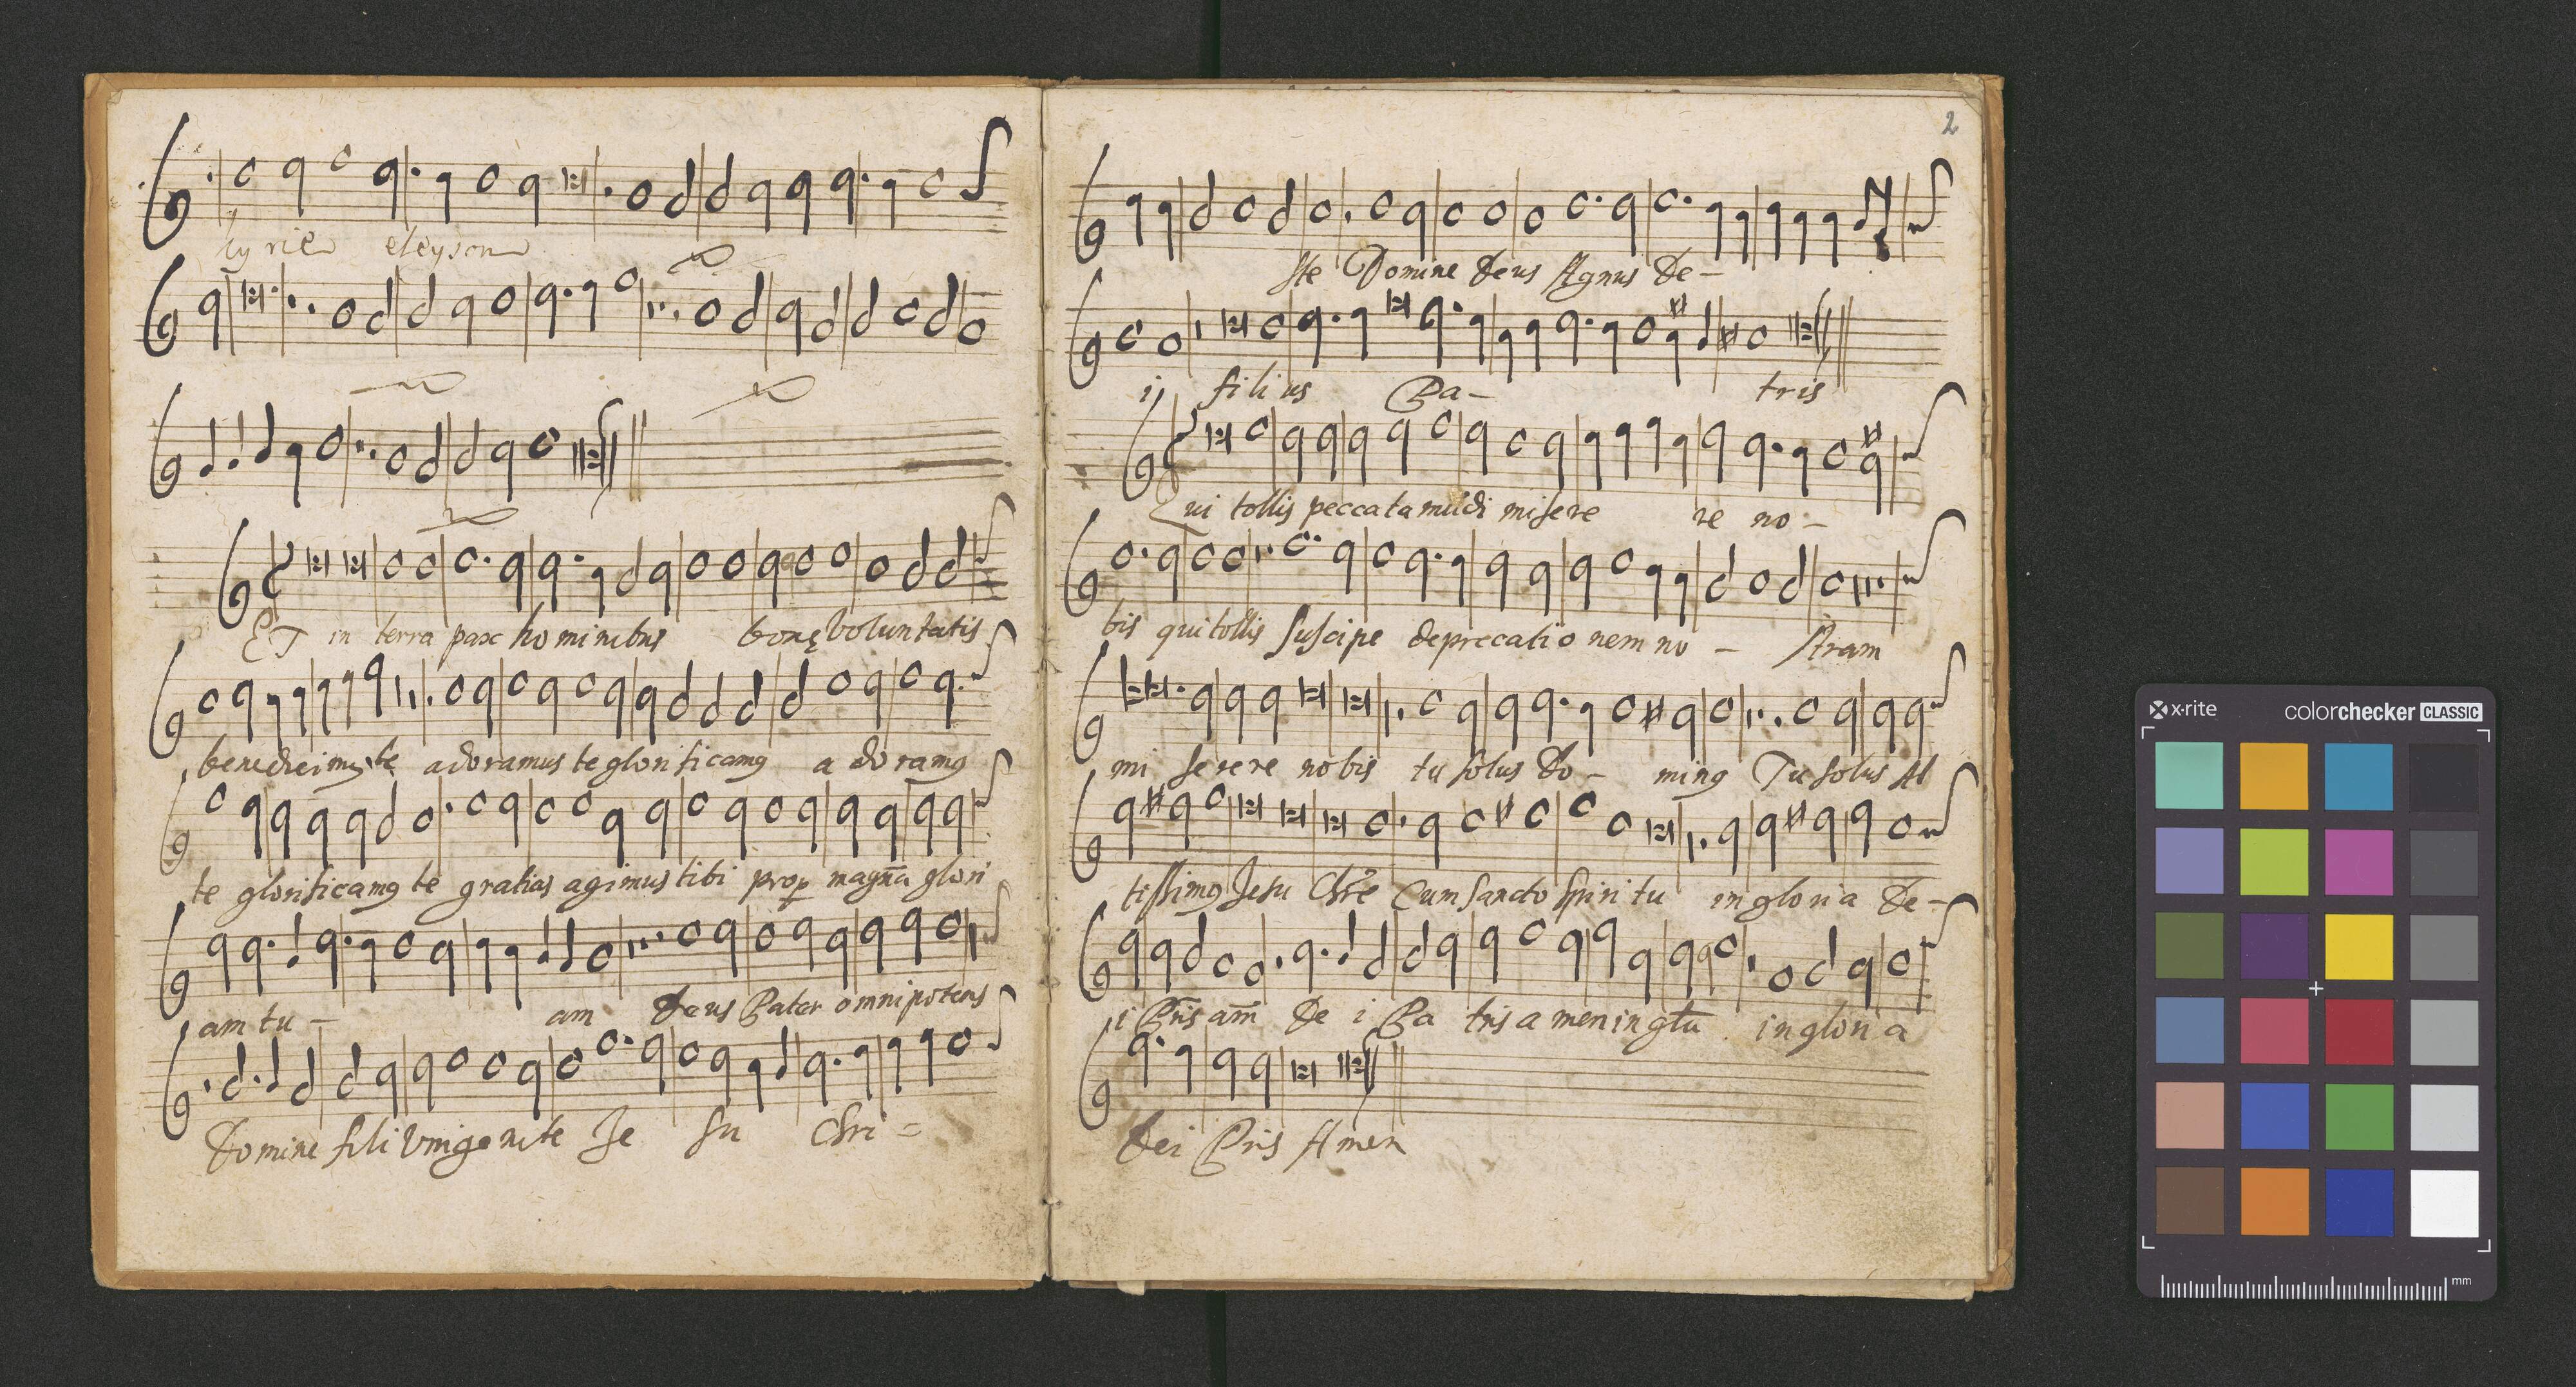 kyrie eleyson
ET in terra pax hominibus bonę voluntatis
te adoramus te glorificamꝰ adoramꝰ
te glorificamꝰ te gratias agimus tibi magnā glori
am tu - am Deus Pater omnipotens
Domine fili Vnigenite Je su Chri =
2
ste Domine Deus Agnus De -
i filius Pa - tris
Qui tollis peccata mūdi misere re no -
bis qui tollis suscipe deprecationem no - stram
miserere nobis tu solus Do - minꝰ Tu solus Al
tissimꝰ Jesu Chr̄e Cum sancto spiritu in gloria De -
i Pr̄is am̄ De i Pa tris amen in in gloria
Dei Pris Amen
x-rite colorchecker CLASSIC
mm